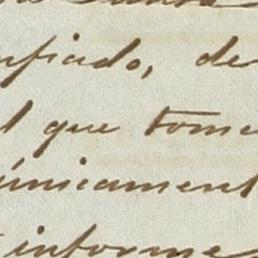 nfiado, de
l que tome
únicament
informe